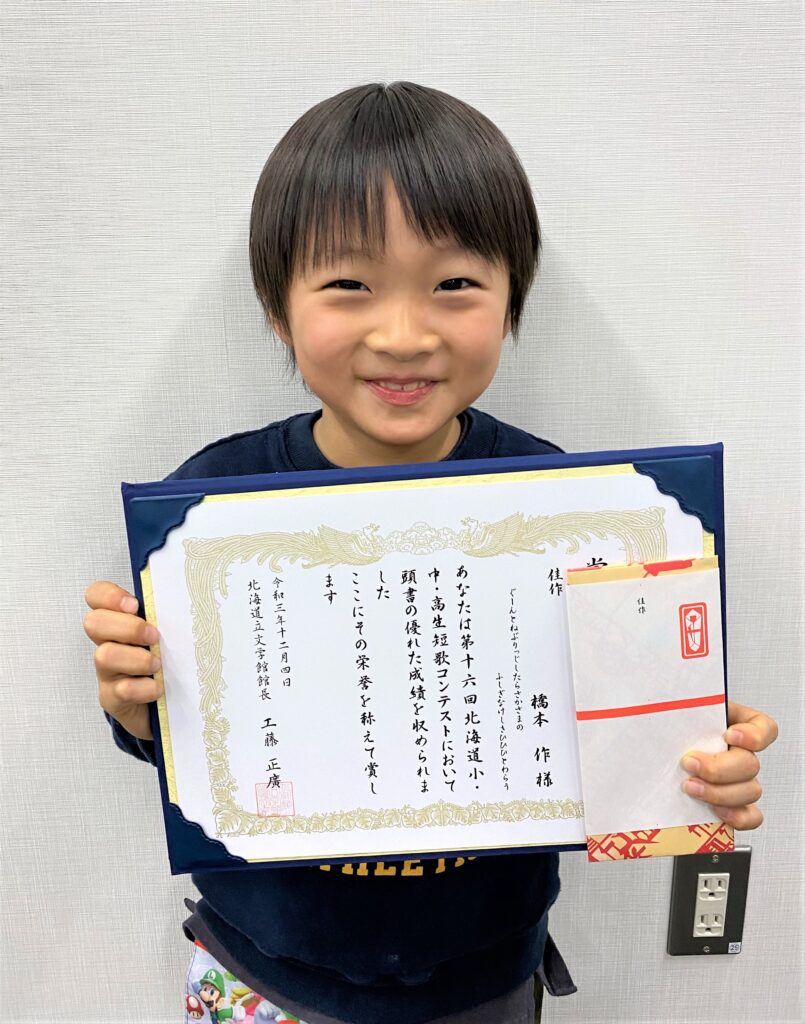 賞
佳作
橋本 作様
ぐーんとねぶりっじしたらさかさまの
ふしぎなけしきひひひとわらう
あなたは第十六回北海道小・
中・高生短歌コンテストにおいて
頭書の優れた成績を収められま
した
ここにその栄誉を称えて賞し
ます
令和三年十二月四日
北海道立文学館館長 工藤 正廣
佳作
25